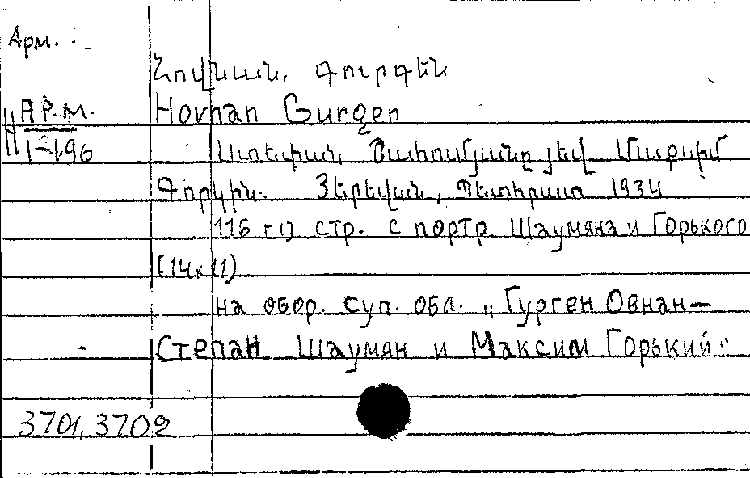 Арм.
Հովնան, Գուրգեն
АР.М. Hovnan Gurgen
1-196 Ստեփան Շահումյանը յեվ Մաքսիմ
Գորկին. Յերեվան, Պետհրատ 1934
116 стр. с портр. Шаумяна и Горького
(14x11)
на обор. суп. обл. „Гурген Овнан—
Степан Шаумян и Максим Горький"
3701, 3702